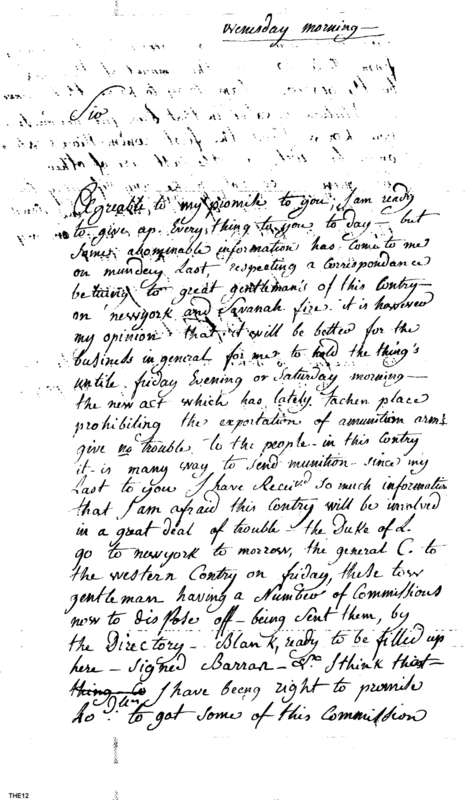 Wenesday morning —
Sir
Agreable to my promise to you, I am ready
to give up Every thing to you to day — but
some abominable information has come to me
on munday Last, respecting a correspondance
betwing to great gentleman's of this Contry —
on newyork and Savanah fire it is however
my opinion that it will be better for the
business in general for me to hold the thing's
untile friday Evening or Saturday morning —
the new act which has lately tachen place
prohibiting the exportation of amunition arm's
give no trouble to the people in this Contry
it is many way to send munition since my
Last to you I have Received so much information
that I am afraid this Contry will be involved
in a great deal of trouble — the Duke of L.
go to newyork to morrow, the general C. to
the western Contry on friday, these tow
gentleman having a Number of Commissions
now to dispose off — being sent them, by
the Directory — Blank, ready to be filled up
here — signed Barras — I think that
thing I have being right to promise
to got some of this Commission
THE12